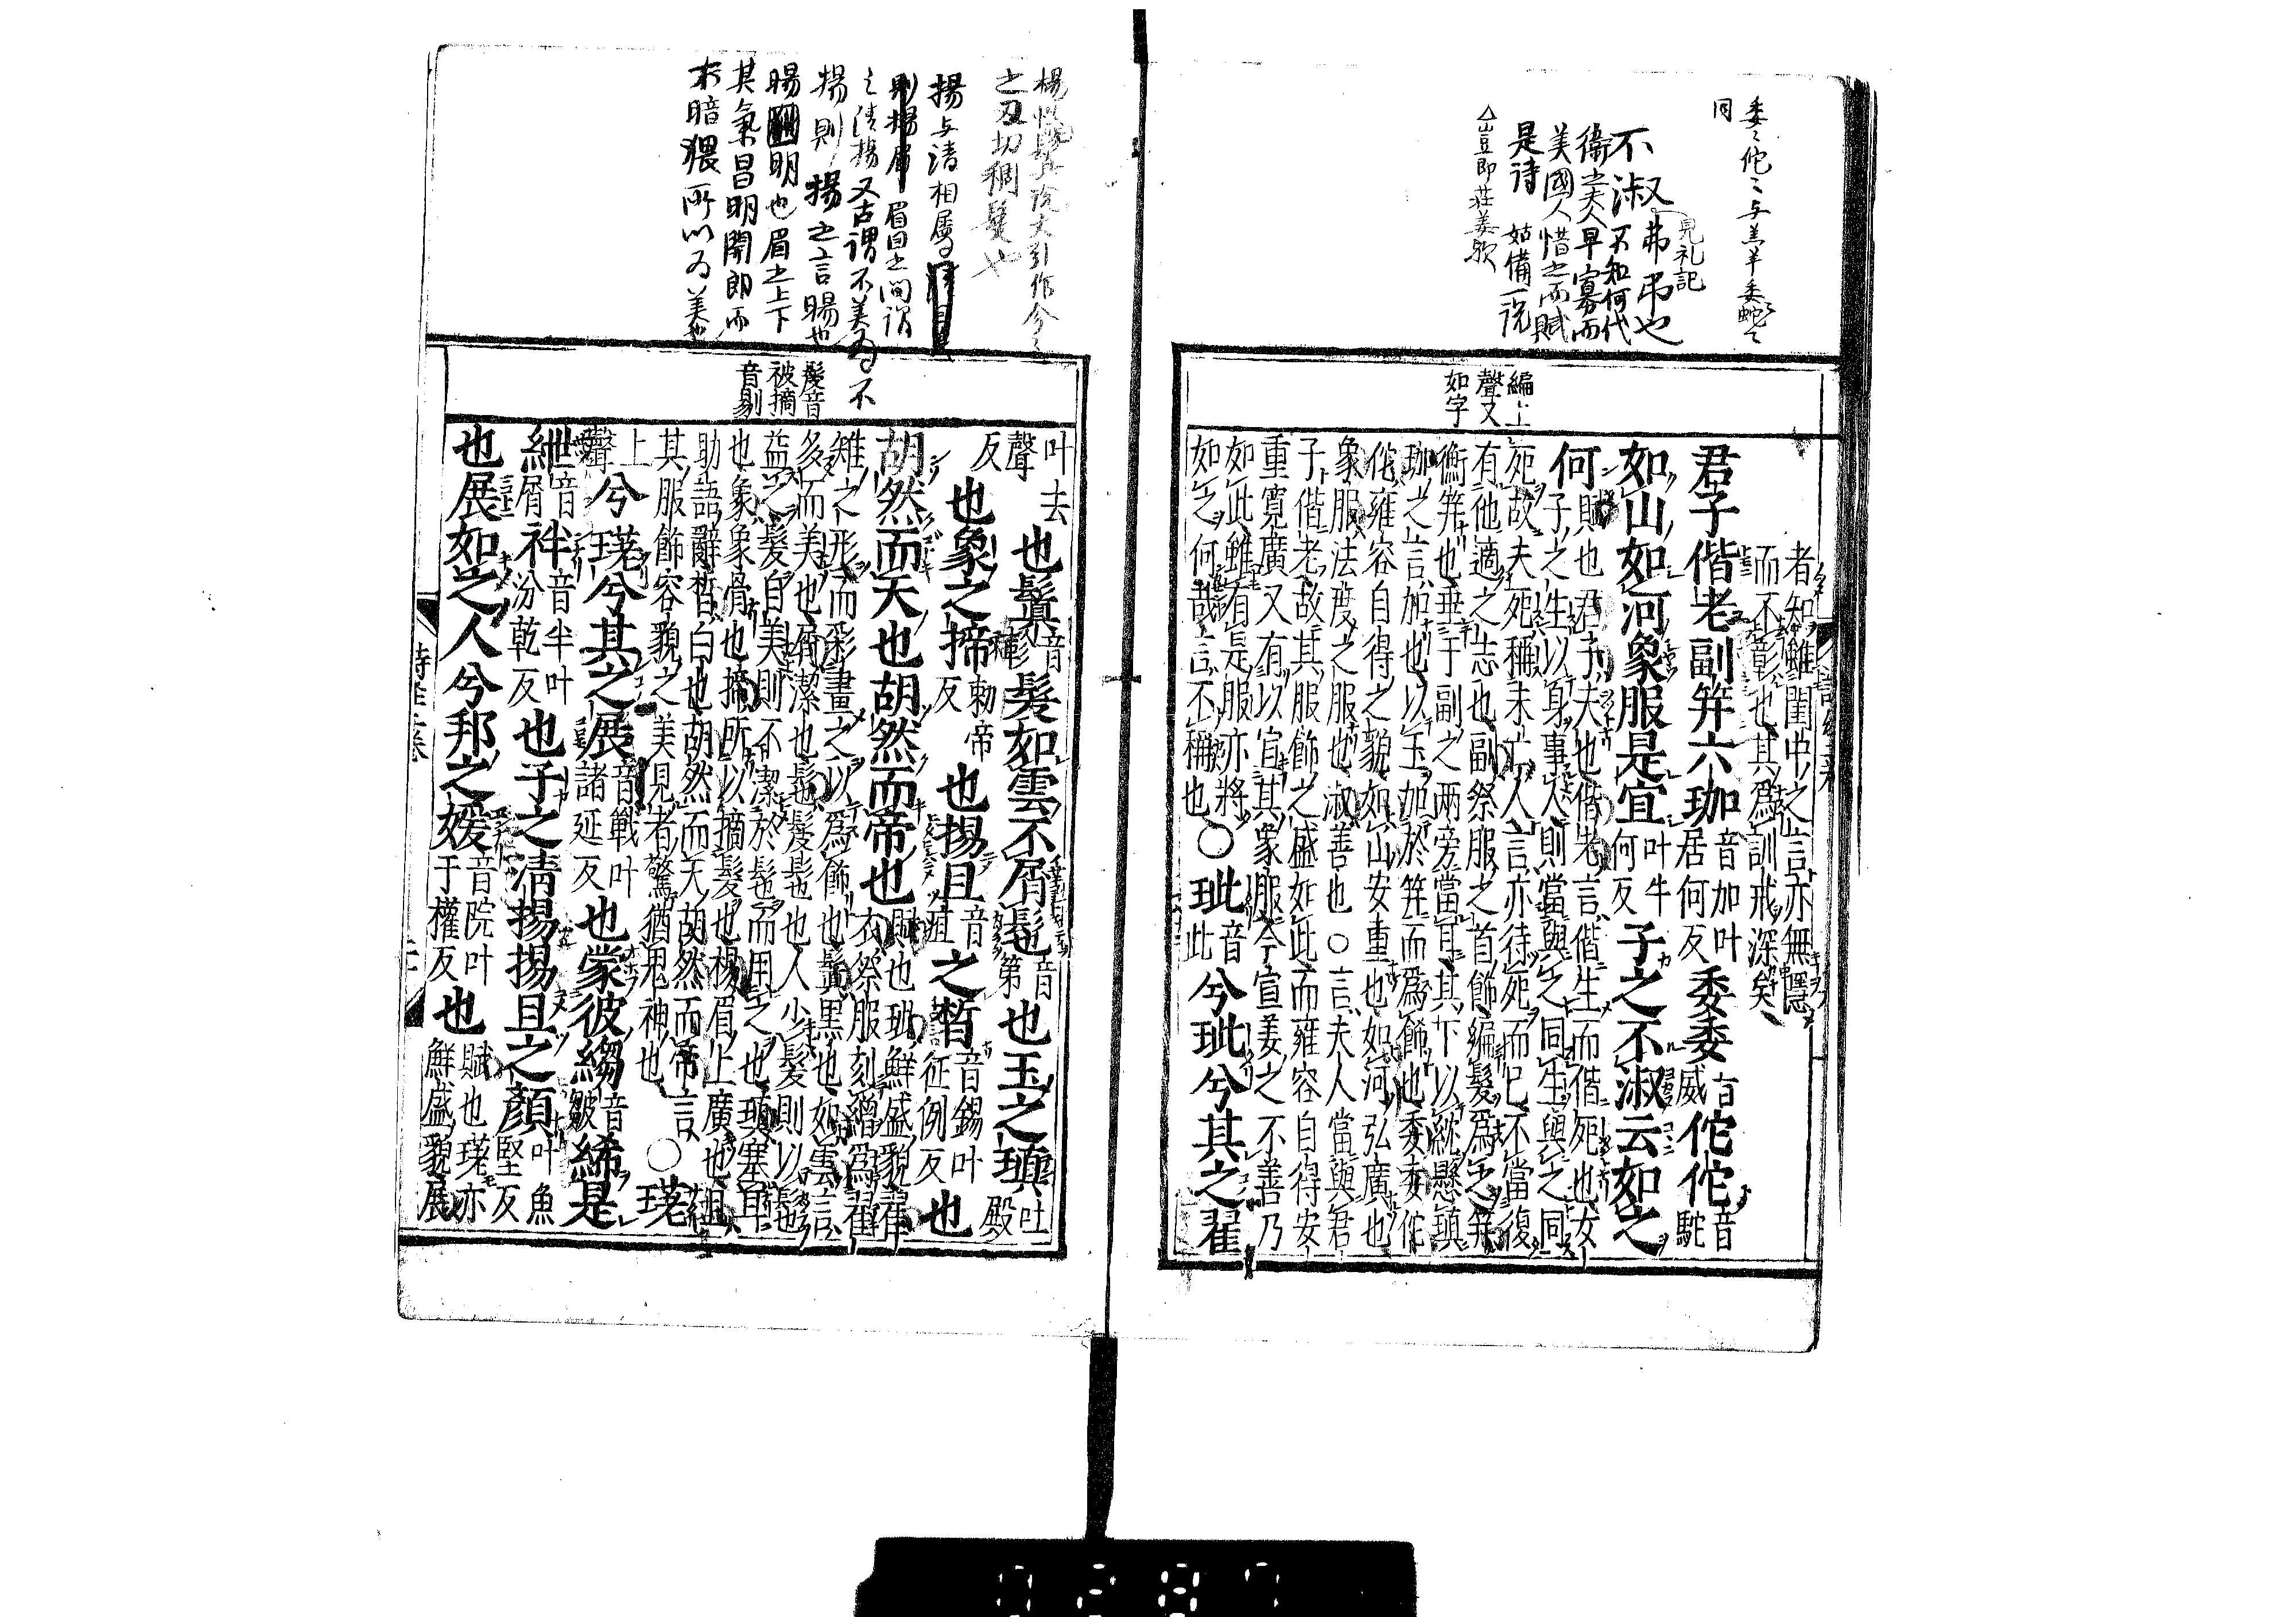 委〻佗〻与羔羊委蛇〻
同
見礼記
不淑弗弔也
不淑不知何代
衛之夫人早寡而
美國人惜之而賦
是詩 姑備一説
△豈即荘姜歟
編上
聲又
如字
者知雖閨中之言亦無隱
而不彰也其爲訓戒深矣
君子偕老副笄六珈音加叶居何反委委音威佗佗音駝
如山如河象服是宜叶牛何反子之不淑云如之
何賦也君子夫也偕老言偕生而偕死也女
子之生以身事人則當與之同生與之同
死故夫死稱未亡人言亦待死而已不當復
有他適之志也副祭服之首飾編髮爲之笄
衡笄也垂于副之兩旁當耳其下以紞懸瑱
珈之言加也以玉加於笄而爲飾也委委佗
佗雍容自得之貌如山安重也如河弘廣也
象服法度之服也淑善也○言夫人當與君
子偕老故其服飾之盛如此而雍容自得安
重寬廣又有以宜其象服今宣姜之不善乃
如此雖有是服亦將
如之何哉言不稱也○玼音此兮玼兮其之翟
楊与清相屬
眉目之間謂
之清揚又古謂不美為不
揚則揚之言暘也
暘明也眉之上下
其氣昌明開朗而
不暗猥所以为美也
髲音
被摘
音剔
叶去聲反也鬒音軫髮如雲不屑髢音第也玉之瑱吐殿
反也象之揥勑帝反也揚且音疽之晳音錫叶征例反也
胡然而天也胡然而帝也賦也玼鮮盛貌翟衣祭服刻繒爲翟
雉之形而彩畫之以爲飾也鬒黑也如雲言
多而美也屑潔也髢髲髢也人少髮則以髢
益之髮自美則不潔於髢而用之也瑱塞耳
也象象骨也揥所以摘髮也揚眉上廣也且
助語辭晳白也胡然而天胡然而帝言
其服飾容貌之美見者驚猶鬼神也○瑳
上聲兮瑳兮其之展音戰叶諸延反也蒙彼縐音皺絺是
紲音屑袢音半叶汾乾反也子之淸揚揚且之顏叶魚堅反
也展如之人兮邦之媛音院叶于權反也賦也瑳亦鮮盛貌展